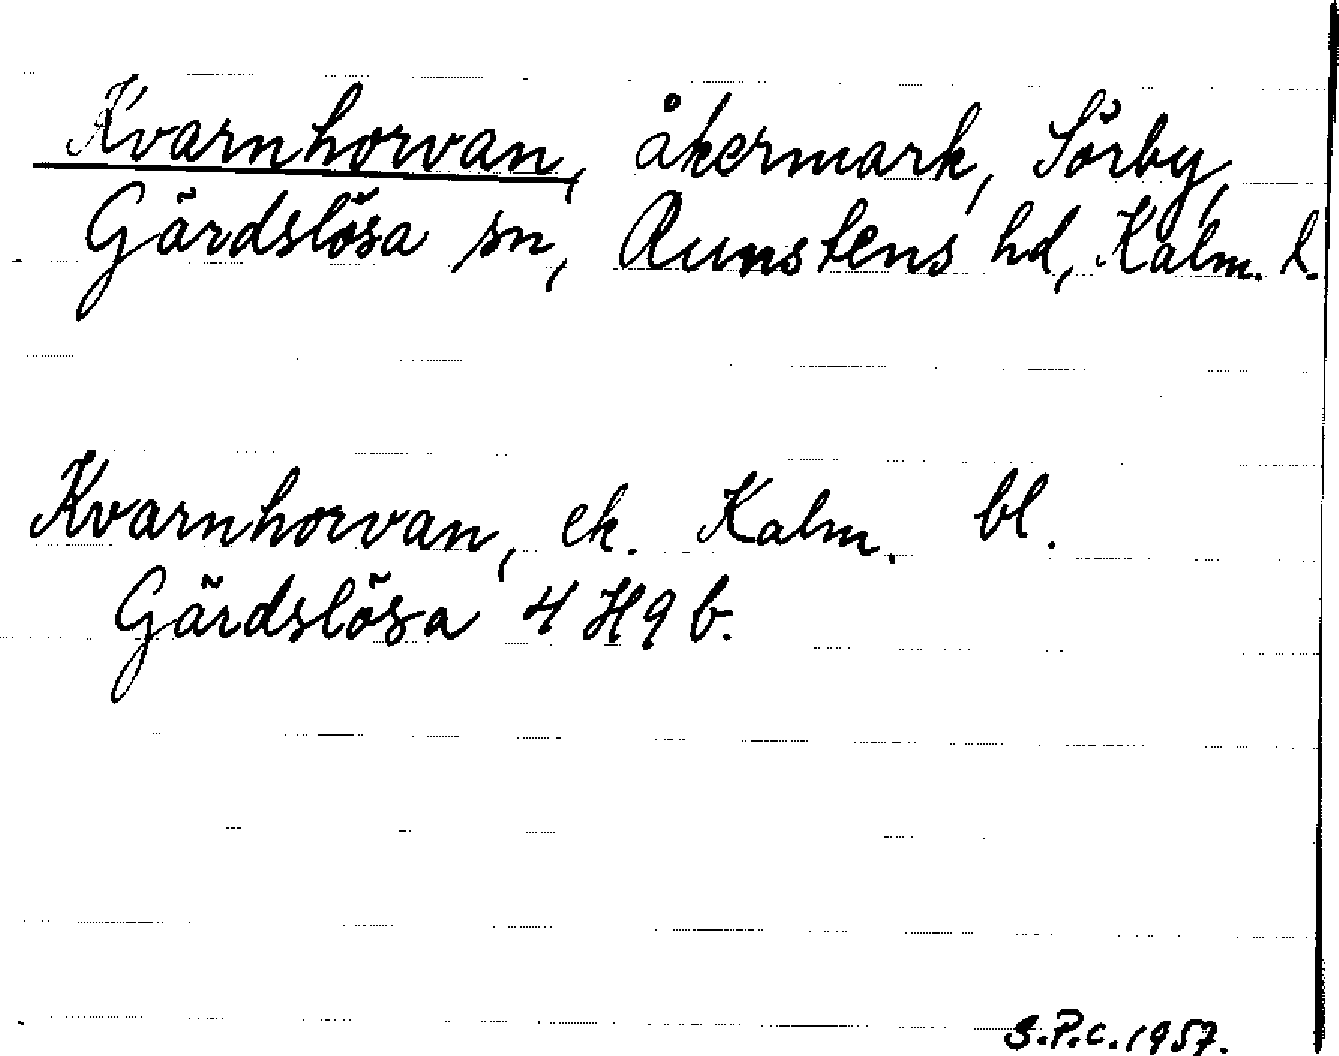 Kvarnhorvan, åkermark, Sörby,
Gärdslösa sn, Runstens hd, Kalm. l.
Kvarnhorvan, ek. Kalm. bl.
Gärdslösa 4 H9 b.
S.P.C. 1957.